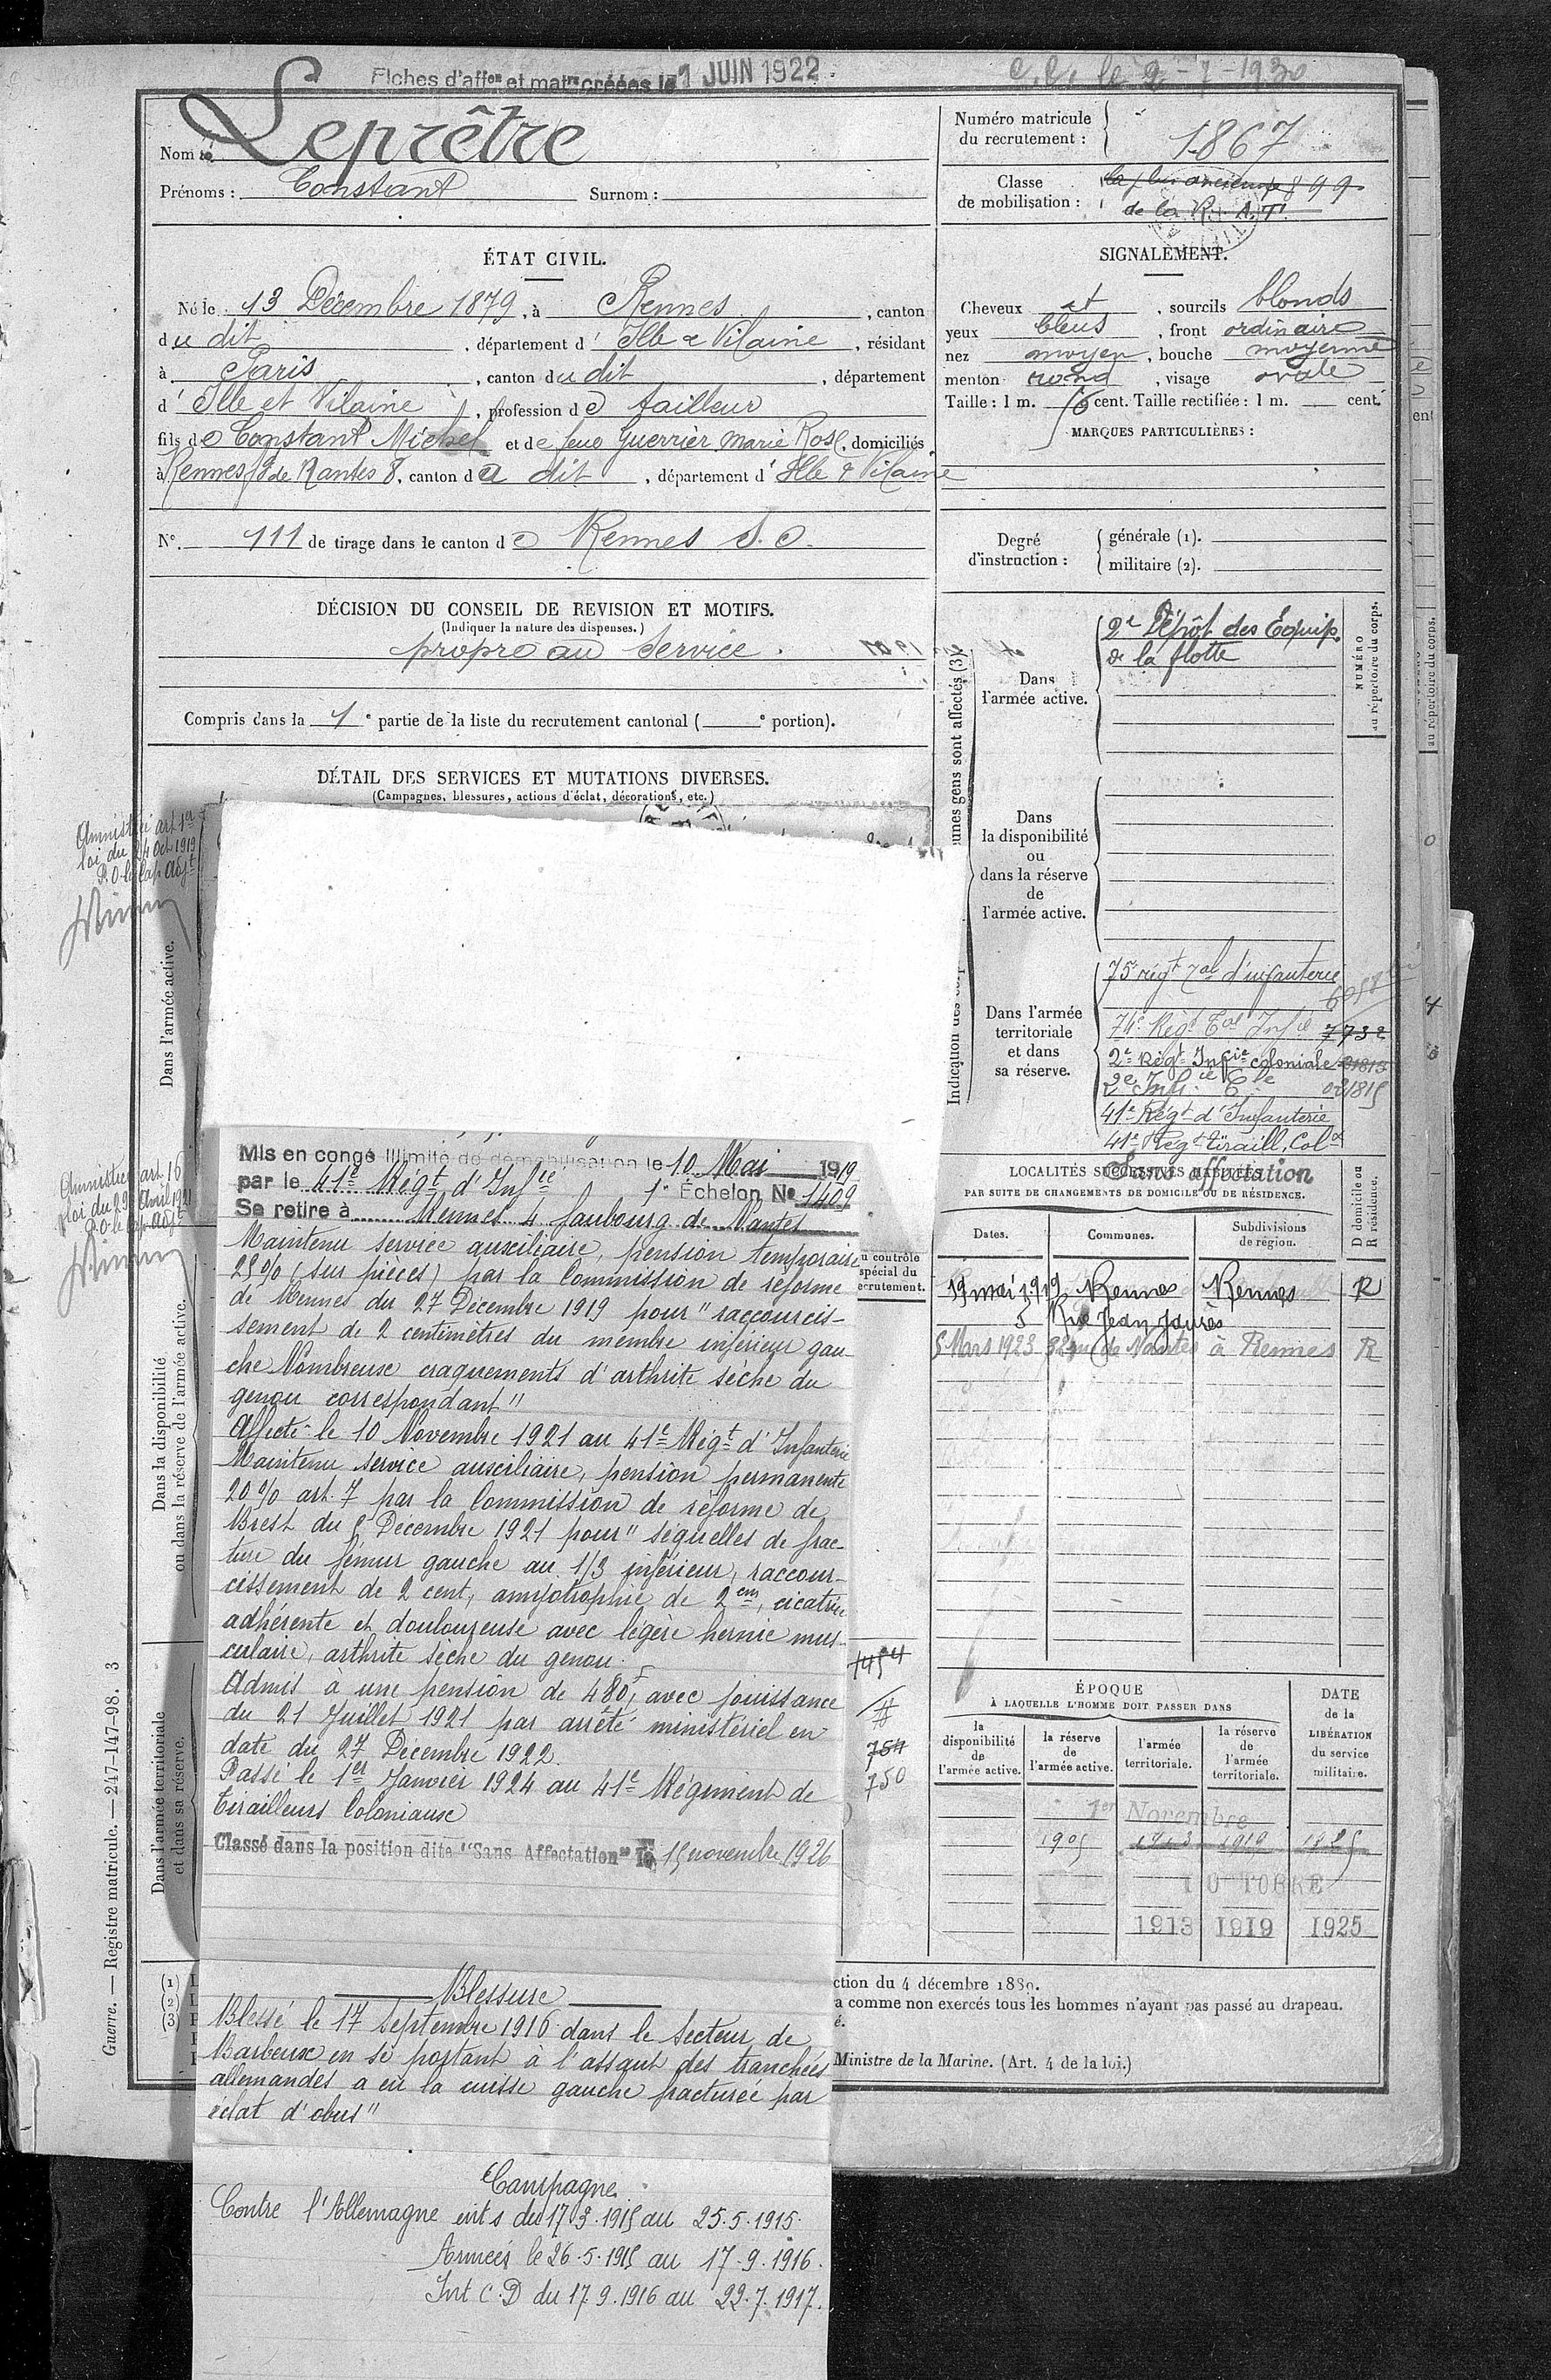 Fiches d'affon et matre créées le 1 JUIN 1922
C.C. le 2-7-1930
Nom : Leprêtre
Prénoms : Constant Surnom :
Numéro matricule
du recrutement : 1867
Classe
de mobilisation : la plus ancienne 1899
de la R. A. T.
ÉTAT CIVIL.
Né le 13 Décembre 1879, à Rennes, canton
du dit, département d'Ille & Vilaine, résidant
à Paris, canton du dit, département
d'Ille et Vilaine, profession de tailleur
fils de Constant Michel et de feue Guerrier Marie Rose, domiciliés
à Rennes fg de Nantes 8, canton du dit, département d'Ille & Vilaine
N° 111 de tirage dans le canton de Rennes S. O.
DÉCISION DU CONSEIL DE REVISION ET MOTIFS.
(Indiquer la nature des dispenses.)
propre au service.
Compris dans la 1e partie de la liste du recrutement cantonal ( e portion).
DÉTAIL DES SERVICES ET MUTATIONS DIVERSES.
(Campagnes, blessures, actions d'éclat, décorations, etc.)
SIGNALEMENT.
Cheveux et, sourcils blonds
yeux bleus, front ordinaire
nez moyen, bouche moyenne
menton rond, visage ovale
Taille : 1 m. 56 cent. Taille rectifiée : 1 m. cent.
MARQUES PARTICULIÈRES :
Degré
d'instruction :
générale (1).
militaire (2).
NUMÉRO
au répertoire du corps.
Dans
l'armée active.
2e Dépôt des Equip.
de la flotte
Dans
la disponibilité
ou
dans la réserve
de
l'armée active.
Dans l'armée
territoriale
et dans
sa réserve.
75e régt ral d'infanterie
74e Régt Tal Infie 7732
2e Régt Infie coloniale
2e Infie Cle 021815
41e Régt d'Infanterie
41e Régt tiraill. Colx
Sans affectation
LOCALITÉS SUCCESSIVES HABITÉES
PAR SUITE DE CHANGEMENTS DE DOMICILE OU DE RÉSIDENCE.
D domicile ou
R résidence.
Dates. Communes. Subdivisions
de région.
19 mai 1919 Rennes Rennes R
5 Rue Jean Jaurès
5 Mars 1923 82 rue de Nantes à Rennes R
ÉPOQUE
À LAQUELLE L'HOMME DOIT PASSER DANS
la
disponibilité
de
l'armée active.
la réserve
de
l'armée active.
l'armée
territoriale.
la réserve
de
l'armée
territoriale.
DATE
de la
LIBÉRATION
du service
militaire.
1er Novembre
1905 1913 1919 1925
10 TOBRE
1913 1919 1925
Amnistié art 1er
loi du 24 Oct 1919
P.O. le Cap. Adjt
Amnistié art. 16
loi du 29 Avril 1921
P.O. le Cap. Adjt
Dans l'armée active.
Dans la disponibilité
ou dans la réserve de l'armée active.
Dans l'armée territoriale
et dans sa réserve.
Guerre. — Registre matricule. — 247-147-98. 3
Mis en congé illimité de démobilisation le 10 Mai 1919
par le 41e Régt d'Infie 1er Échelon No 1409
Se retire à Rennes 4 faubourg de Nantes
Maintenu service auxiliaire, pension temporaire
25% (sur pièces) par la Commission de réforme
de Rennes du 27 Décembre 1919 pour "raccourcis-
sement de 2 centimètres du membre inférieur gau-
che Nombreux craquements d'arthrite sèche du
genou correspondant"
Affecté le 10 Novembre 1921 au 41e Régt d'Infanterie
Maintenu service auxiliaire, pension permanente
20% art. 7 par la Commission de réforme de
Brest du 8 Décembre 1921 pour "séquelles de frac-
ture du fémur gauche au 1/3 inférieur, raccour-
cissement de 2 cent, amyotrophie de 2 cm, cicatrice
adhérente et douloureuse avec légère hernie mus-
culaire, arthrite sèche du genou.
Admis à une pension de 480f, avec jouissance
du 21 Juillet 1921 par arrêté ministériel en
date du 27 Décembre 1922.
Passé le 1er Janvier 1924 au 41e Régiment de
Tirailleurs Coloniaux
Classé dans la position dite "Sans Affectation" le 15 novembre 1926
u contrôle
spécial du
recrutement.
1454
754
750
Blessure
Blessé le 17 Septembre 1916 dans le secteur de
Barbeux en se portant à l'assaut des tranchées
allemandes a eu la cuisse gauche fracturée par
éclat d'obus"
Campagne
Contre l'Allemagne int s du 17.3.1915 au 25.5.1915.
Armées le 26.5.1915 au 17.9.1916.
Int C.D du 17.9.1916 au 22.7.1917.
(1)
(2)
(3)
ction du 4 décembre 1889.
a comme non exercés tous les hommes n'ayant pas passé au drapeau.
é.
Ministre de la Marine. (Art. 4 de la loi.)